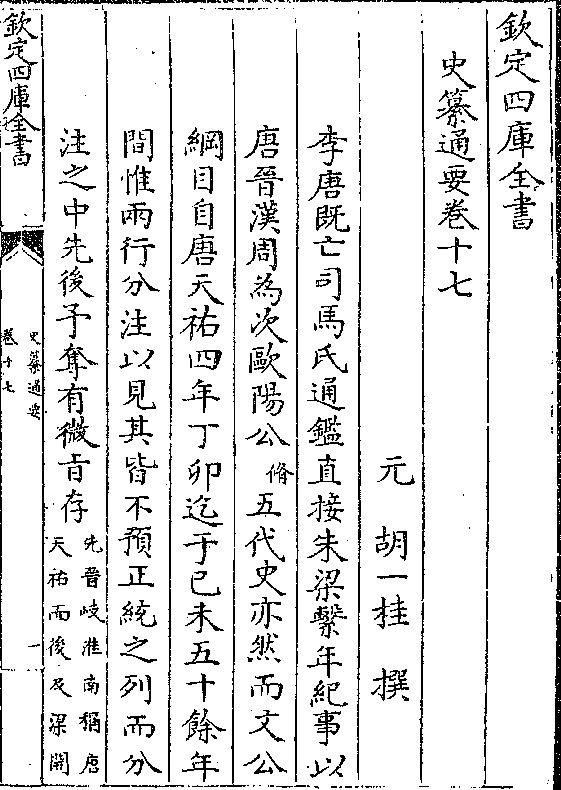 欽定四庫全書
史纂通要卷十七
元 胡一桂 撰
李唐既亡司馬氏通鑑直接朱梁繫年紀事以
唐晉漢周為次歐陽公脩五代史亦然而文公
綱目自唐天祐四年丁卯迄于己未五十餘年
間惟兩行分注以見其皆不預正統之列而分
注之中先後予奪有微旨存先晉岐淮南稱唐
天祐而後及梁開
欽定四庫全書
史纂通要
卷十七
一